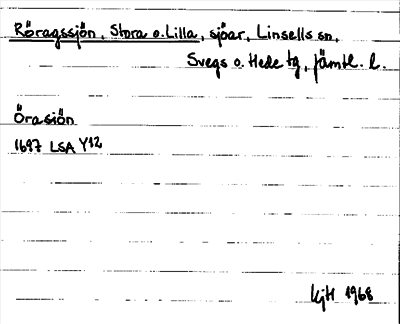 Röragssjön, Stora o. Lilla, sjöar, Linsells sn,
Svegs o. Hede tg, Jämtl. l.
Örasjön
1697 LSA Y12
KjH 1968